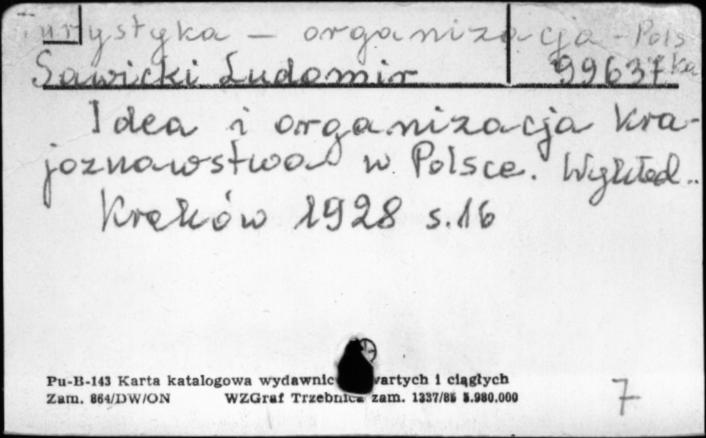 Turystyka – organizacja – Polska
Sawicki Ludomir 99637
Idea i organizacja kra-
joznawstwa w Polsce. Wykład..
Kraków 1928 s.16
Pu-B-143 Karta katalogowa wydawnic wartych i ciągłych
Zam. 864/DW/ON WZGraf Trzebnica zam. 1237/86 5.980.000
7